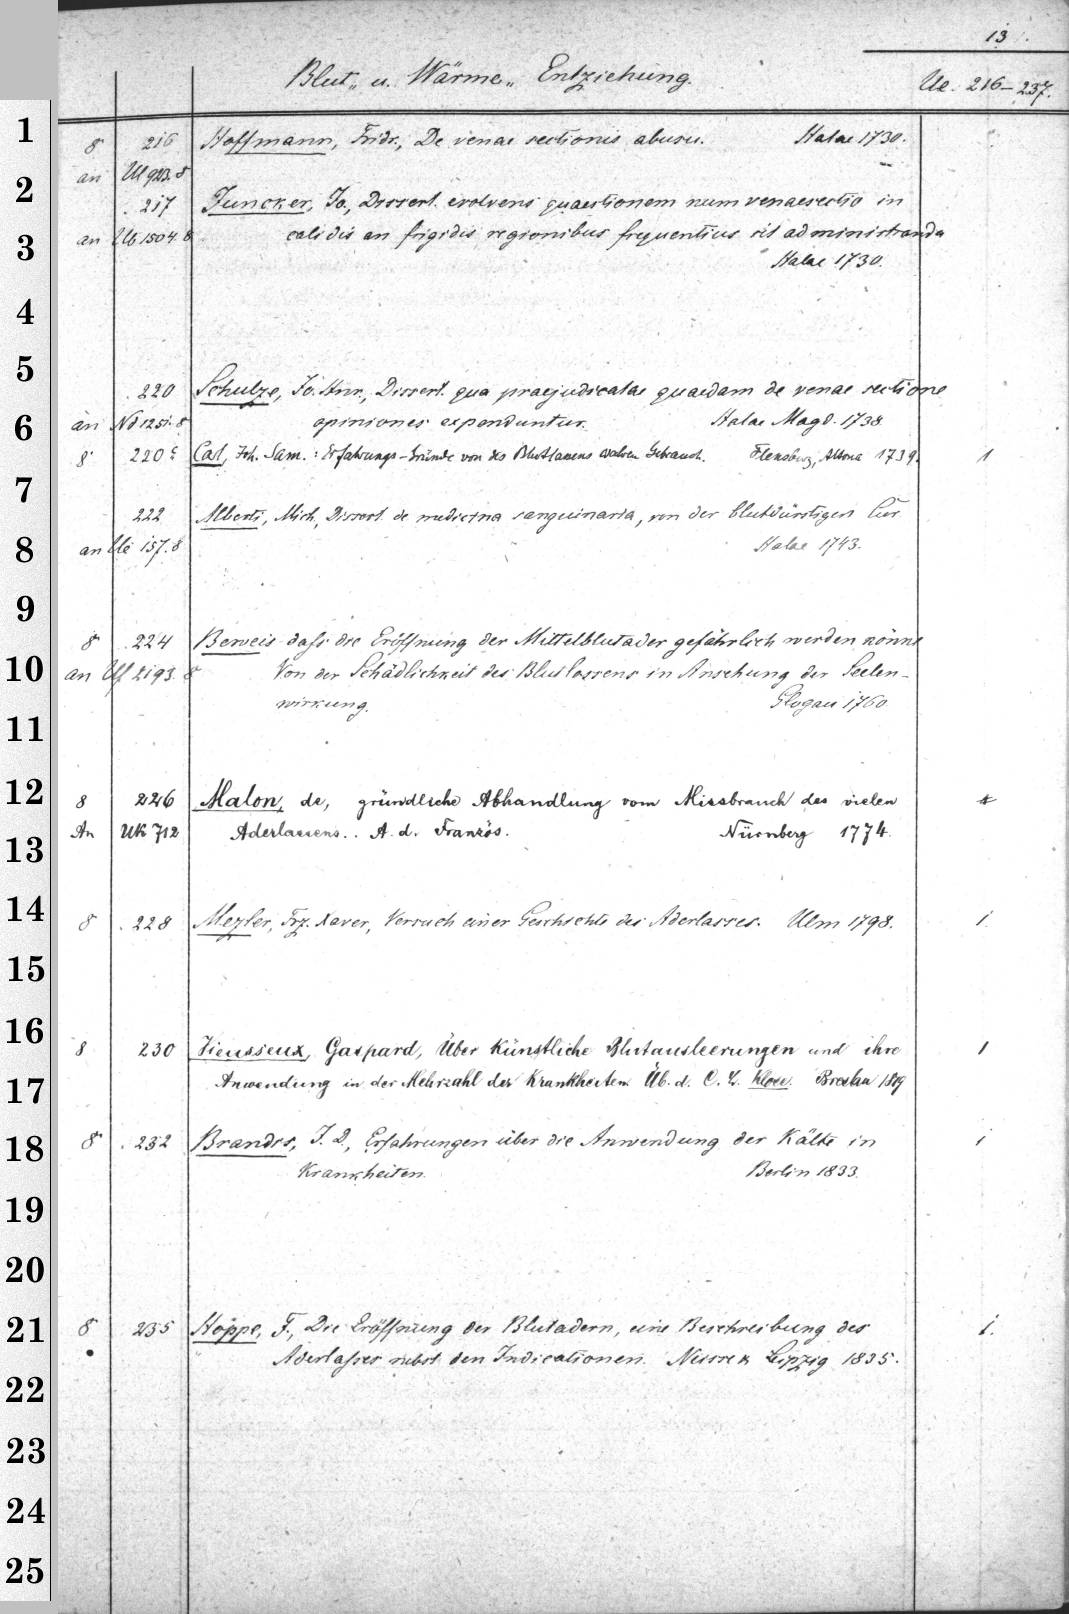 13.
Blut„ u. Wärme„ Entziehung.
Ue. 216–237.
1
8 216 Hoffmann, Fridr., De venae sectionis abusu. Halae 1730.
an
2
217 Juncker, Jo., Dissert. evolvens quaestionem num venaesectio in
3
an Ub 1504.8 calidis an frigidis regionibus frequentius sit administranda
Halae 1730.
4
5
220 Schulze, Jo. Hnr., Dissert. qua praejudicatae quaedam de venae sectione
6
an Nd 1251.8 opiniones expenduntur. Halae Magd. 1738.
8 220 Carl, Joh. Sam.: Erfahrungs-Gründe von des Blutlassens wahren Gebrauch. Flensburg, Altona 1739. 1
7
222 Alberti, Mich., Dissert. de medicina sanguinaria, von der blutdürstigen Cur
8
an Ue 157.8 Halae 1743.
9
8 224 Beweis dass die Eröffnung der Mittelblutader gefährlich werden könne
10
an Uf 2193.8 Von der Schädlichkeit des Blutlassens in Ansehung der Seelen-
wirkung. Glogau 1760
11
12
8 226 Malon, de, gründliche Abhandlung vom Missbrauch des vielen
An UK 712 Aderlassens.. A. d. Französ. Nürnberg 1774.
13
14
8 228 Mezler, Frz. Xaver, Versuch einer Geschichte des Aderlasses. Ulm 1798. 1.
15
16
8 230 Vieusseux, Gaspard, Über künstliche Blutausleerungen und ihre 1
17
Anwendung in der Mehrzahl der Krankheiten. Üb. d. C. L. Klose. Breslau 1819
18
8 232 Brandis, J. D., Erfahrungen über die Anwendung der Kälte in 1
Krankheiten. Berlin 1833.
19
20
21
8 235 Hoppe, F., Die Eröffnung der Blutadern, eine Beschreibung des 1.
Aderlasses nebst den Indicationen. Leipzig 1835.
22
23
24
25